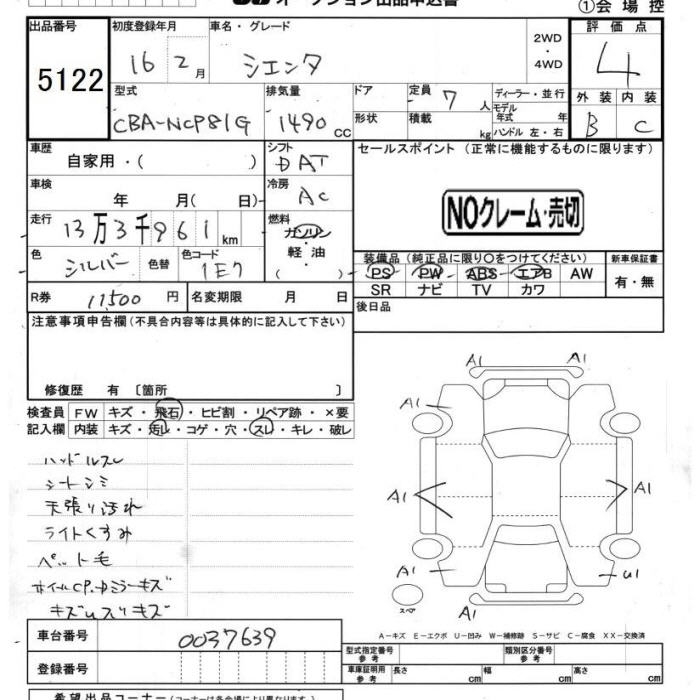 オークション出品申込書
①会場控
出品番号 初度登録年月 車名・グレード 評価点
5122 16 2月 シエンタ 2WD ・ 4WD 4
型式 排気量 ドア 定員 7人 ディーラー・並行 外装 内装
CBA-NCP81G 1490 CC 形状 積載 kg モデル年式 年 ハンドル 左・右 B C
車歴 自家用・( ) シフト DAT セールスポイント (正常に機能するものに限ります)
車検 年 月( 日) 冷房 AC NOクレーム・売切
走行 13万3千961km 燃料 ガソリン 軽油 ( )
色 シルバー 色替 色コード 1E7 装備品 (純正品に限り○をつけてください) 新車保証書
PS PW ABS エアB AW 有・無
R券 11,500円 名変期限 月 日 SR ナビ TV カワ
注意事項申告欄(不具合内容等は具体的に記入して下さい) 後日品
修復歴 有 〔箇所 〕
検査員 FW キズ・飛石・ヒビ割・リペア跡・×要
記入欄 内装 キズ・汚レ・コゲ・穴・スレ・キレ・破レ
ハンドルスレ
シートシミ
天張り汚れ
ライトくすみ
ペット毛
ホイルCP.中ミラーキズ
キズUスリキズ
A1 A1
A1
A1 A1
A1 U1
スペア
A1
A-キズ E-エクボ U-凹み W-補修跡 S-サビ C-腐食 XX-交換済
車台番号 0037639 型式指定番号 参考 類別区分番号 参考
登録番号 車庫証明用 参考 長さ cm 幅 cm 高さ cm
希望出品コーナー(コーナーは各会場により異なります。)